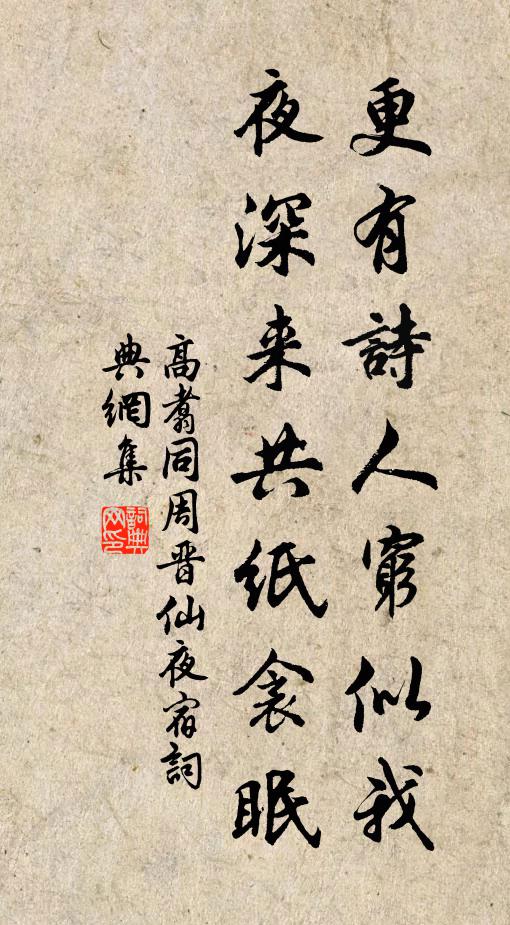 更有詩人窮似我
夜深来共紙衾眠
高翥同周晋仙夜宿詞
典網集
詞典网印